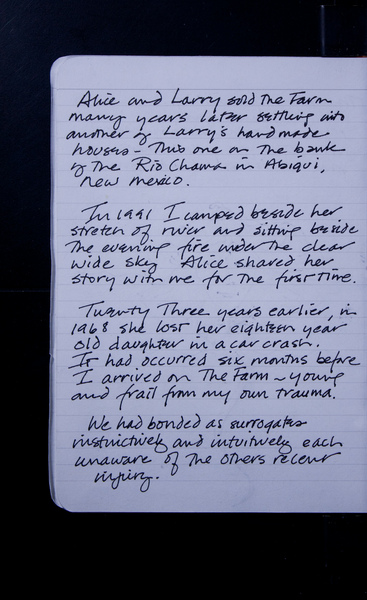 Alice and Larry sold the Farm
many years later settling into
another of Larry's handmade
houses - This one on the bank
of the Rio Chama in Abiqui,
New Mexico.
In 1991 I camped beside her
stretch of river and sitting beside
the evening fire under the clear
wide sky Alice shared her
story with me for the first time.
Twenty Three years earlier, in
1968 she lost her eighteen year
old daughter in a car crash.
It had occurred six months before
I arrived on The Farm ~ young
and frail from my own trauma.
We had bonded as surrogates
instinctively and intuitively each
unaware of the others recent
injury.